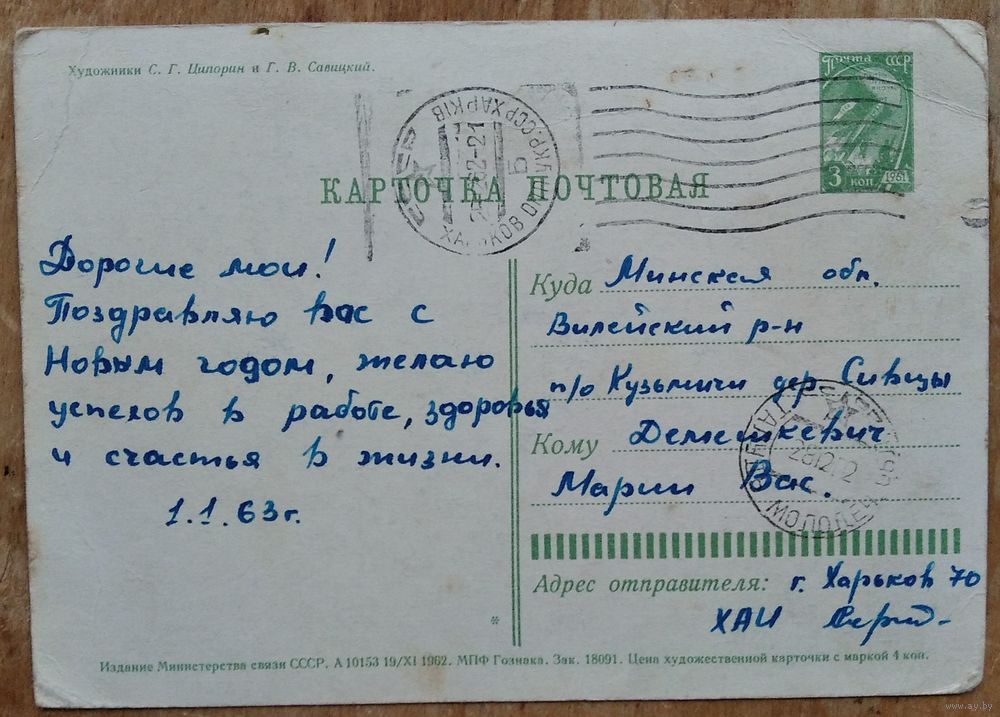 Художники С. Г. Ципорин и Г. В. Савицкий.
Почта СССР
3 коп
1961
УКР. ССР ХАРКІВ
62-21
Б
ХАРЬКОВ
КАРТОЧКА ПОЧТОВАЯ
Дорогие мои!
Поздравляю вас с
Новым годом, желаю
успехов в работе, здоровья
и счастья в жизни.
1.1.63г.
Куда Минская обл.
Вилейский р-н
п/о Кузьмичи дер Сивцы
Кому Демешкевич
Марии Вас.
МОЛОДЕЧ
Адрес отправителя: г. Харьков 70
ХАИ
*
Издание Министерства связи СССР. А 10153 19/XI 1962. МПФ Гознака. Зак. 18091. Цена художественной карточки с маркой 4 коп.
www.ay.by